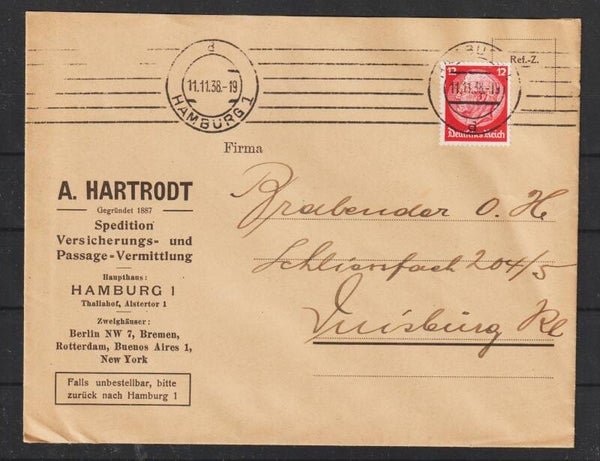 a
11.11.38.-19
HAMBURG 1
11.11.38.-19
a
12 12
Deutsches Reich
Ref.-Z.
Firma
A. HARTRODT
Gegründet 1887
Spedition
Versicherungs- und
Passage-Vermittlung
Haupthaus:
HAMBURG 1
Thaliahof, Alstertor 1
Zweighäuser:
Berlin NW 7, Bremen,
Rotterdam, Buenos Aires 1,
New York
Falls unbestellbar, bitte
zurück nach Hamburg 1
Brabender O. He
Schliessfach 204/5
Duisburg Rh